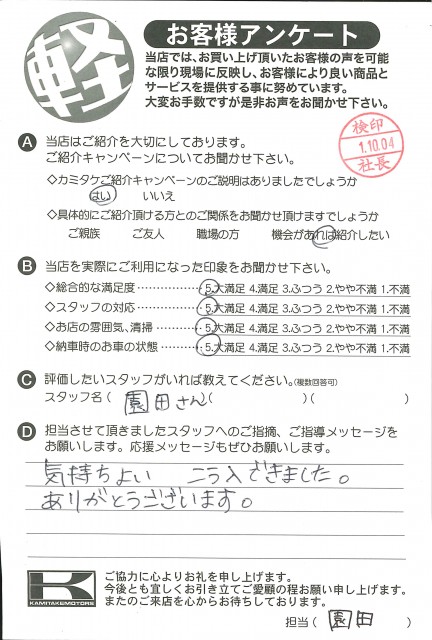 軽
お客様アンケート
当店では、お買い上げ頂いたお客様の声を可能
な限り現場に反映し、お客様により良い商品と
サービスを提供する事に努めています。
大変お手数ですが是非お声をお聞かせ下さい。
検印
1.10.04
社長
A 当店はご紹介を大切にしております。
ご紹介キャンペーンについてお聞かせ下さい。
◇カミタケご紹介キャンペーンのご説明はありましたでしょうか
はい いいえ
◇具体的にご紹介頂ける方とのご関係をお聞かせ頂けますでしょうか
ご親族 ご友人 職場の方 機会があれば紹介したい
B 当店を実際にご利用になった印象をお聞かせ下さい。
◇総合的な満足度 ‥‥‥‥‥ 5.大満足 4.満足 3.ふつう 2.やや不満 1.不満
◇スタッフの対応 ‥‥‥‥‥ 5.大満足 4.満足 3.ふつう 2.やや不満 1.不満
◇お店の雰囲気、清掃 ‥‥‥ 5.大満足 4.満足 3.ふつう 2.やや不満 1.不満
◇納車時のお車の状態 ‥‥‥ 5.大満足 4.満足 3.ふつう 2.やや不満 1.不満
C 評価したいスタッフがいれば教えてください。(複数回答可)
スタッフ名 ( 園田さん )( )( )
D 担当させて頂きましたスタッフへのご指摘、ご指導メッセージを
お願いします。応援メッセージもぜひお願いします。
気持ちよい こう入できました。
ありがとうございます。
K
KAMITAKEMOTORS
ご協力に心よりお礼を申し上げます。
今後とも宜しくお引き立てご愛顧の程お願い申し上げます。
またのご来店を心からお待ちしております。
担当 ( 園田 )